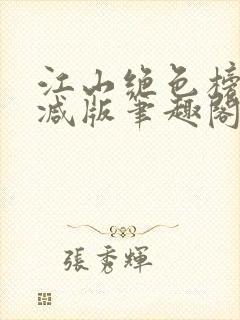 江山绝色榜
减版笔趣阁
張秀輝